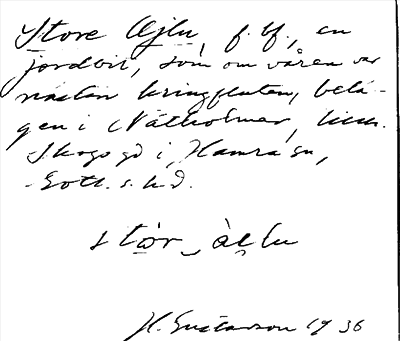 Store Ojlu, f. bf., en
jordbit, som om våren var
nästan kringfluten, belä-
gen i Nätholmar, hem.
Skogs gd i Hamra sn,
Gotl. s. hd.
stör
H. Gustavson 1936